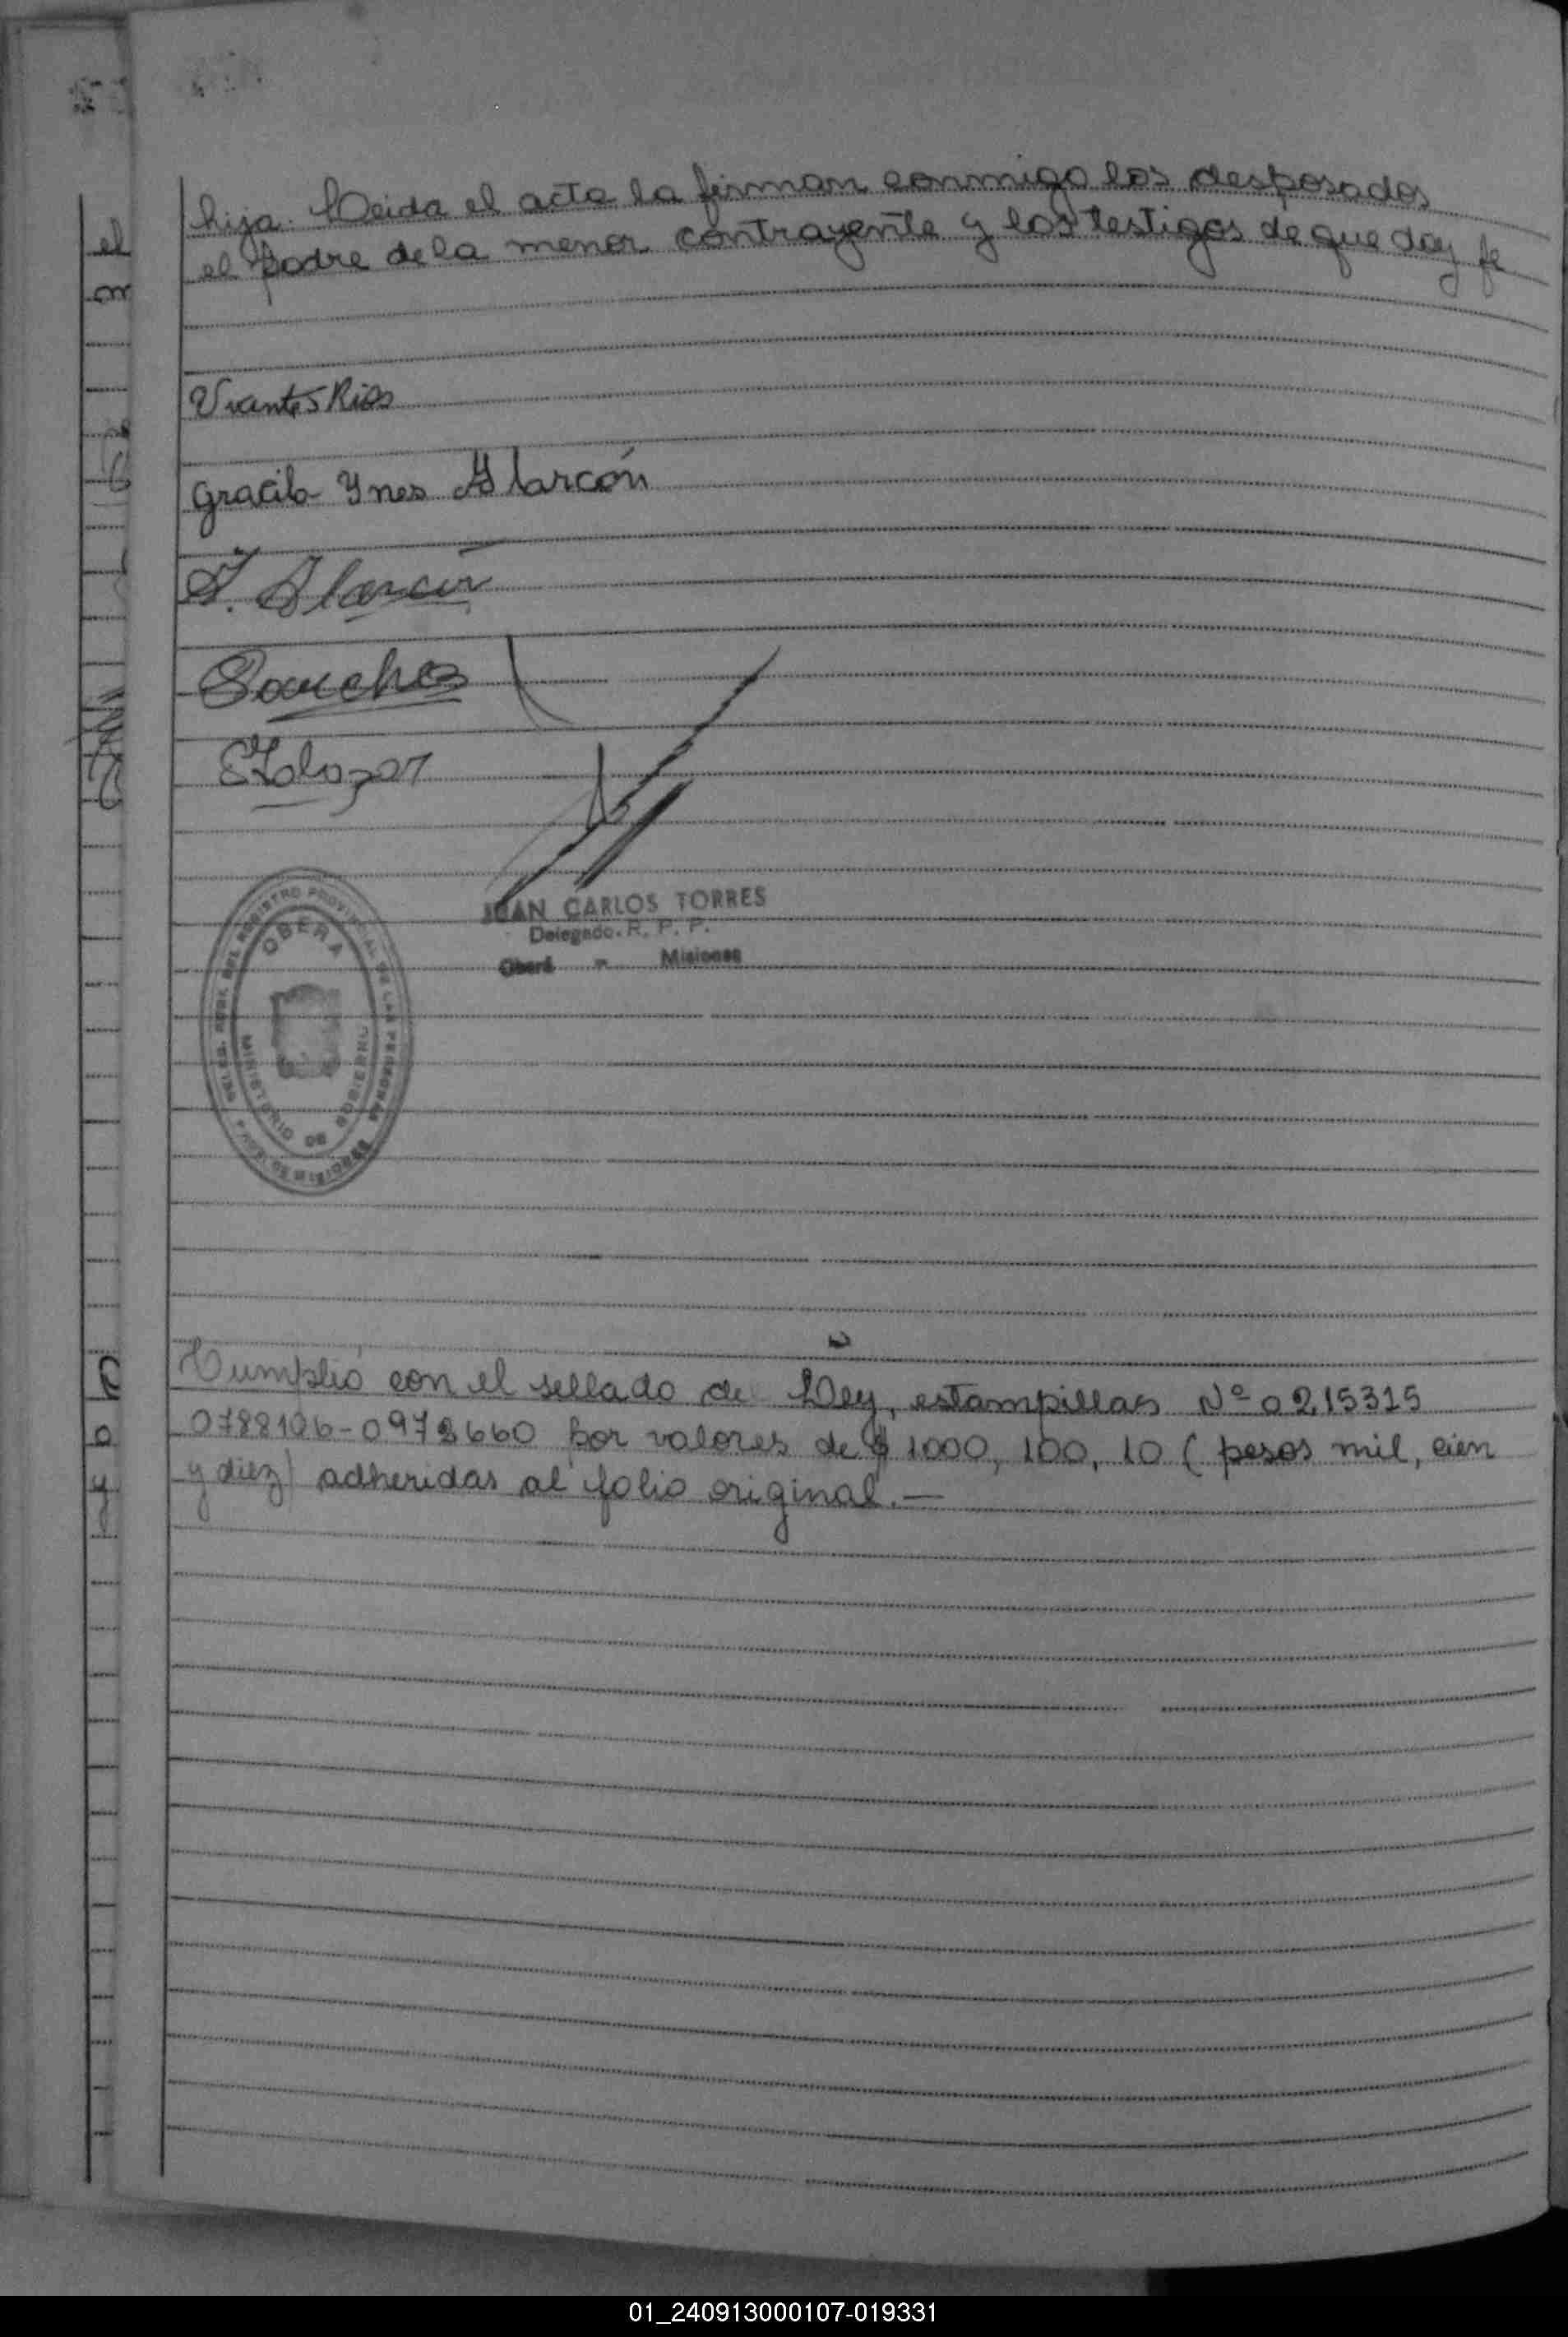 hija. Leida el acta la firman conmigo los desposados
el padre de la menor contrayente y los testigos de que doy fe
Gracila Ynes Alarcón
Sanchez
JUAN CARLOS TORRES
Delegado. R. P. P.
Oberá - Misiones
OBERA
MINISTERIO DE GOBIERNO
REGISTRO PROVINCIAL DE LAS PERSONAS
Cumplió con el sellado de Ley, estampillas Nº 0215315
0788106-0972660 por valores de $ 1000, 100, 10 (pesos mil, cien
y diez) adheridas al folio original.—
01_240913000107-019331